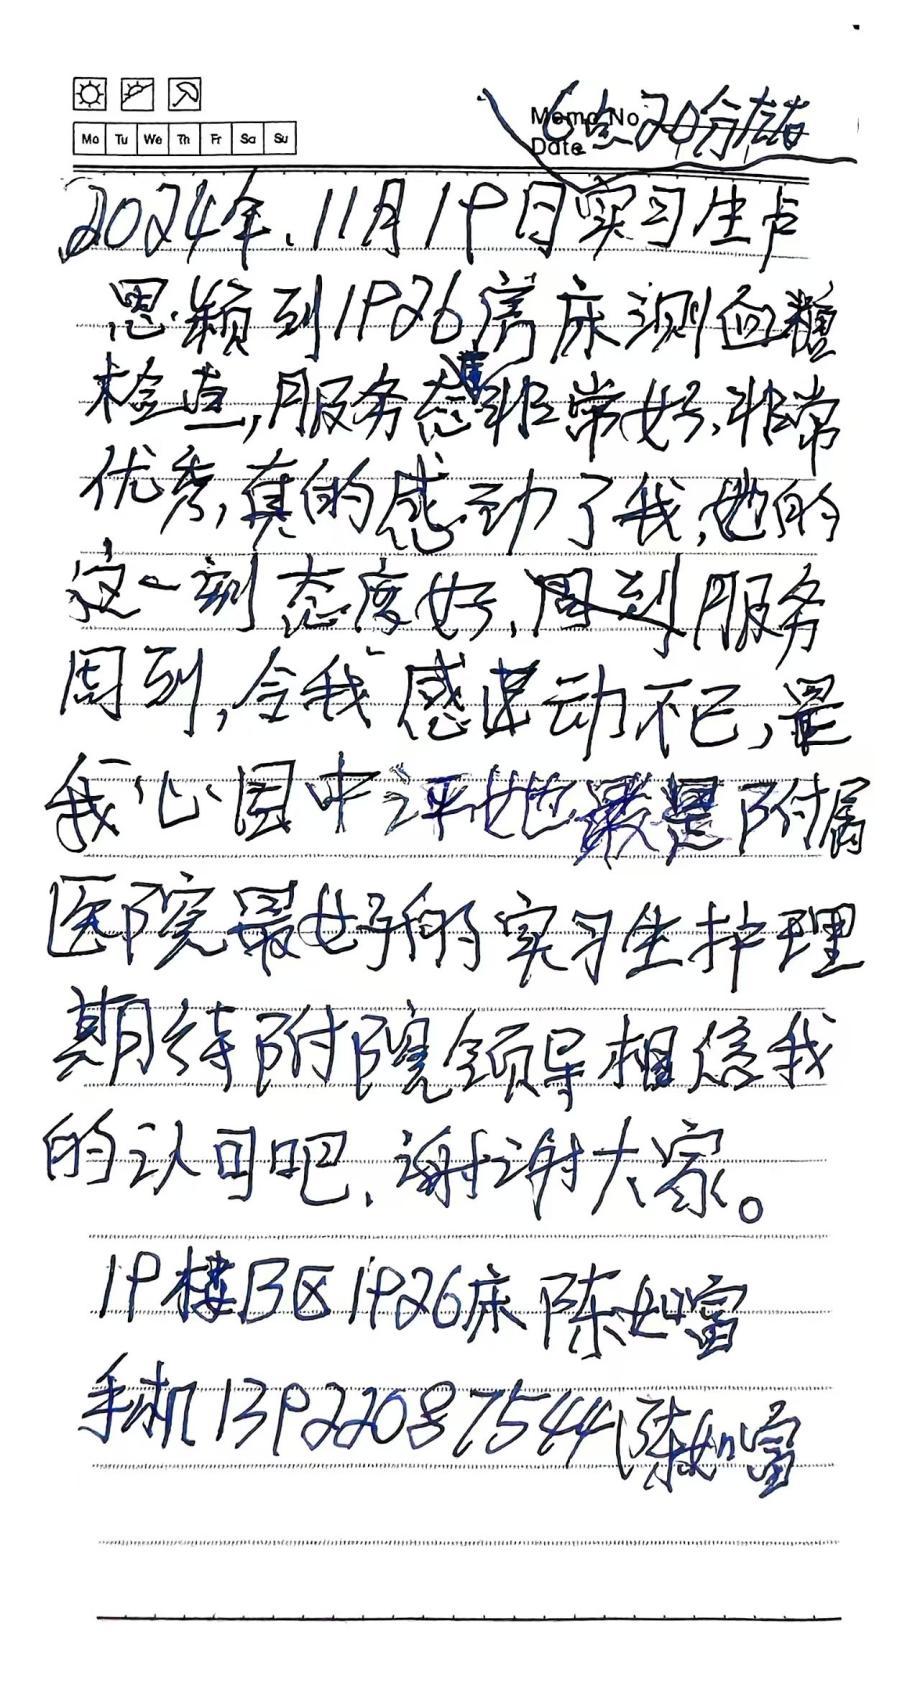 Mo Tu We Th Fr Sa Su
Memo No.
Date
6点20分左右
2024年.11月19日实习生卢
思颖到1926房床测血糖
检查,服务态度非常好,非常
优秀,真的感动了我,她的
这一刻态度好,周到服务
周到,令我感动不已,是
我心目中评她是附属
医院最好的实习生护理
期待附院领导相信我
的认可吧,谢谢大家。
19楼B区1926床陈如富
手机13922087544陈如富